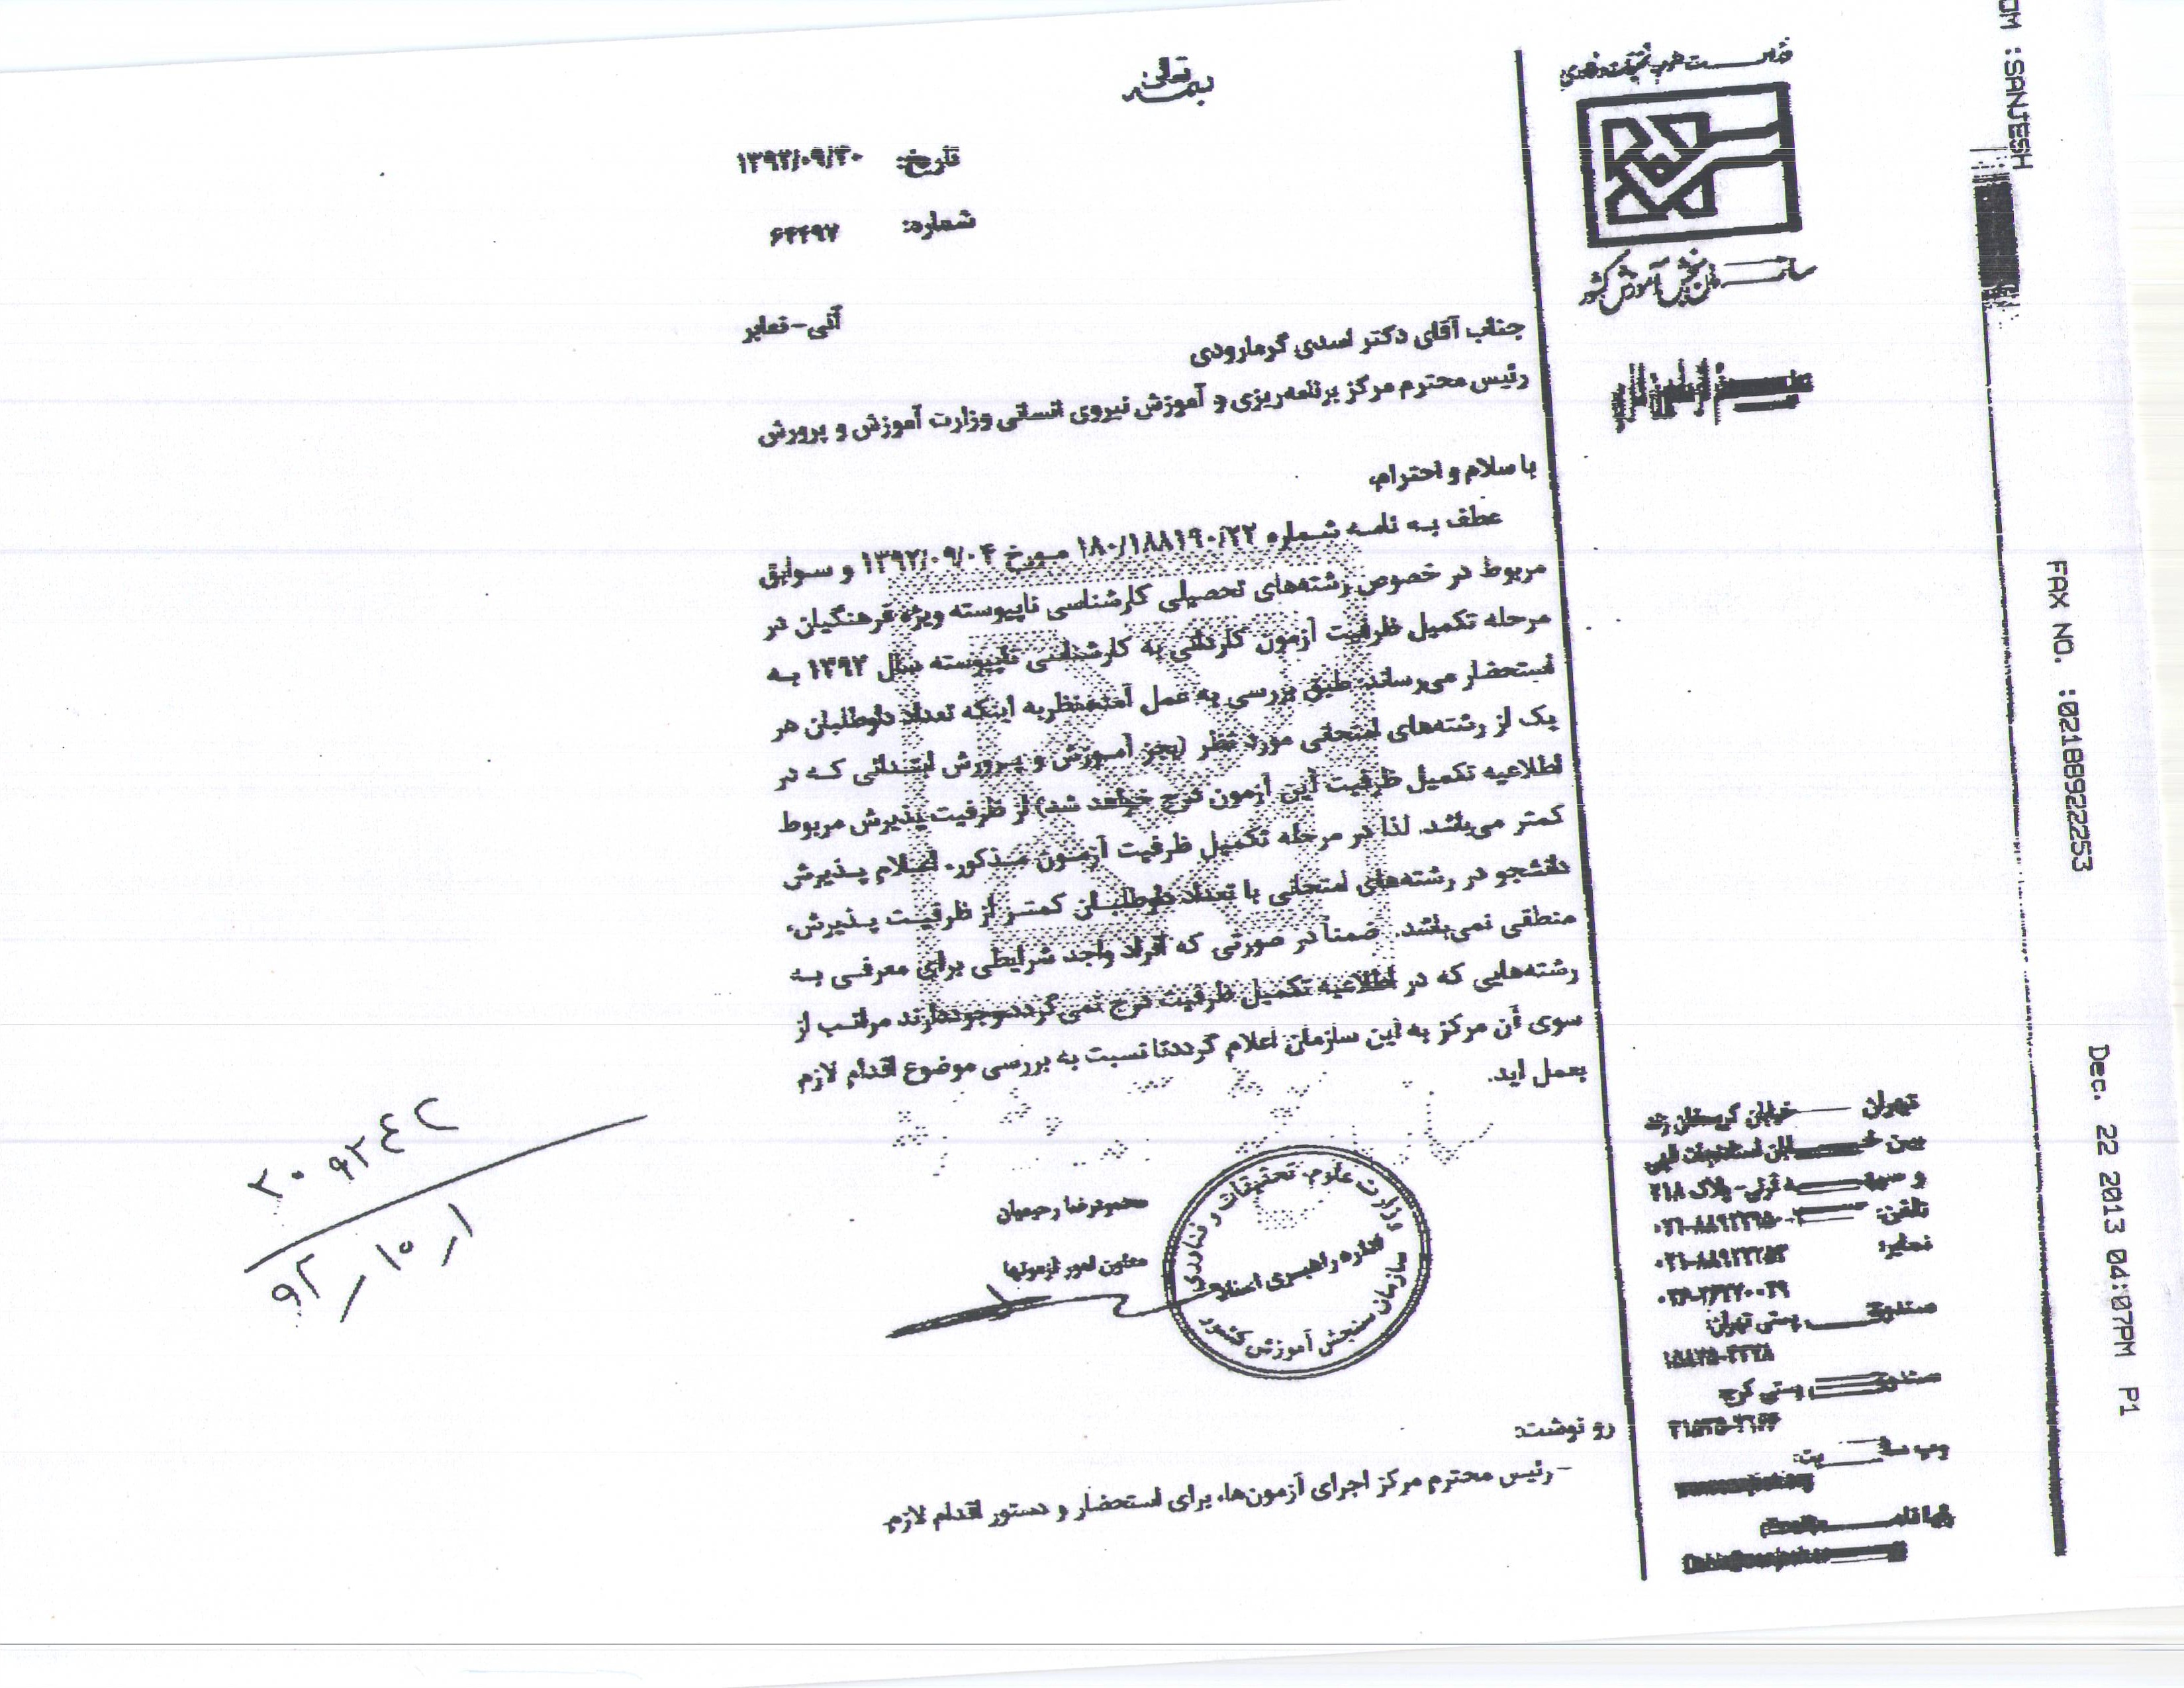 بسمه تعالی
تاریخ: ۱۳۹۲/۰۹/۳۰
شماره: ۶۴۴۹۷
آنی-نمابر
سازمان سنجش آموزش کشور
جناب آقای دکتر اسدی گرمارودی
رئیس محترم مرکز برنامه‌ریزی و آموزش نیروی انسانی وزارت آموزش و پرورش
با سلام و احترام،
عطف به نامه شماره ۱۸۰/۱۸۸۱۹۰/۲۲ مورخ ۱۳۹۲/۰۹/۰۴ و سوابق
مربوط در خصوص رشته‌های تحصیلی کارشناسی ناپیوسته ویژه فرهنگیان در
مرحله تکمیل ظرفیت آزمون کاردانی به کارشناسی ناپیوسته سال ۱۳۹۲ به
استحضار می‌رساند: طبق بررسی به عمل آمده‌نظر به اینکه تعداد داوطلبان هر
یک از رشته‌های امتحانی مورد نظر (بجز آموزش و پرورش ابتدائی که در
اطلاعیه تکمیل ظرفیت این آزمون درج خواهد شد) از ظرفیت پذیرش مربوط
کمتر می‌باشد. لذا در مرحله تکمیل ظرفیت آزمون مذکور، اعلام پذیرش
دانشجو در رشته‌های امتحانی با تعداد داوطلبان کمتر از ظرفیت پذیرش،
منطقی نمی‌باشد. ضمناً در صورتی که افراد واجد شرایطی برای معرفی به
رشته‌هایی که در اطلاعیه تکمیل ظرفیت درج نمی‌گردد وجود دارند مراتب از
سوی آن مرکز به این سازمان اعلام گردد تا نسبت به بررسی موضوع اقدام لازم
بعمل اید.
محمودرضا رحیمیان
معاون امور آزمونها
وزارت علوم، تحقیقات و فناوری
اداره راهبری اسناد
سازمان سنجش آموزش کشور
رو نوشت:
-رئیس محترم مرکز اجرای آزمون‌ها، برای استحضار و دستور اقدام لازم.
تهران
تلفن:
نمابر:
OM :SANJESH
FAX NO. :02188922253
Dec. 22 2013 04:07PM P1
۲۰۹۲۴۲
۹۲_۱۰_۱